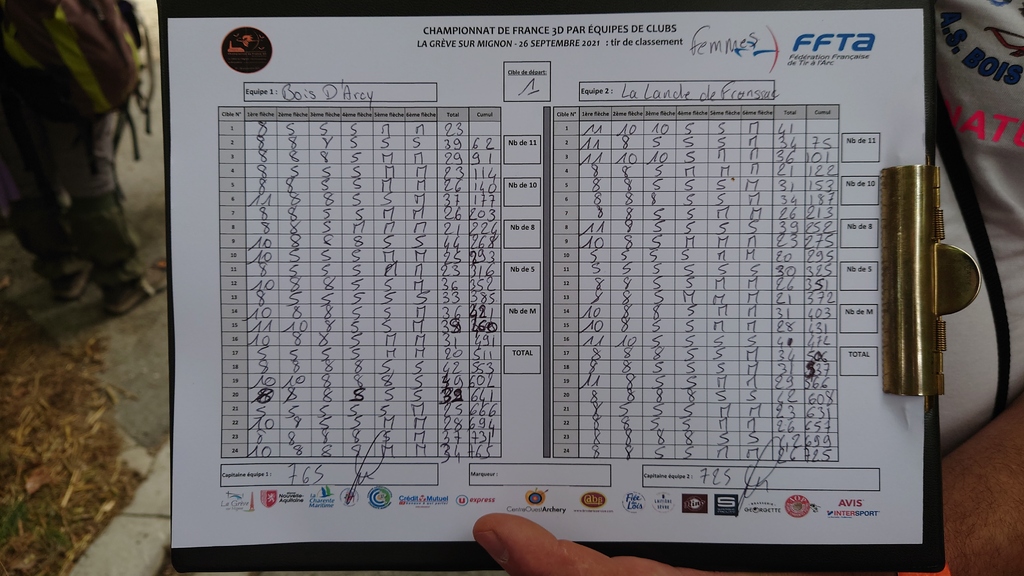 CHAMPIONNAT DE FRANCE 3D PAR ÉQUIPES DE CLUBS
LA GRÈVE SUR MIGNON - 26 SEPTEMBRE 2021 : tir de classement
femmes
FFTA
Fédération Française
de Tir à l'Arc
A.S. BOIS
Cible de départ:
1
Equipe 1 : Bois D'Arcy
Equipe 2 : La Lande de Fronsac
Cible N° 1ère flèche 2ème flèche 3ème flèche 4ème flèche 5ème flèche 6ème flèche Total Cumul
1 8 5 5 5 M M 23
2 8 8 8 5 5 5 39 62
3 8 8 8 5 M M 29 91
4 8 5 5 5 M M 23 114
5 8 8 5 5 M M 26 140
6 11 8 8 5 5 M 37 177
7 8 8 5 5 M M 26 203
8 8 8 5 M M M 21 224
9 10 8 8 8 5 5 44 268
10 10 5 5 5 M M 25 293
11 8 5 5 5 M M 23 316
12 10 8 8 5 5 M 36 352
13 8 5 5 5 5 5 33 385
14 10 8 8 5 5 M 36
15 11 10 8 5 5 M
16 10 8 8 5 M M 31 491
17 5 5 5 5 M M 20 511
18 8 8 8 8 5 5 42 553
19 10 10 8 8 8 5 49 602
20 8 8 8 5 5 5 39 641
21 5 5 5 5 5 M 25 666
22 10 8 5 5 M M 28 694
23 8 8 8 8 5 M 37 731
24 10 8 8 8 M M 34 765
Nb de 11
Nb de 10
Nb de 8
Nb de 5
Nb de M
TOTAL
Cible N° 1ère flèche 2ème flèche 3ème flèche 4ème flèche 5ème flèche 6ème flèche Total Cumul
1 11 10 10 5 5 M 41
2 11 8 5 5 5 M 34 75
3 11 10 10 5 M M 36
4 8 8 5 M M M 21
5 8 8 5 5 5 M 31 153
6 8 8 8 5 5 M 34 187
7 8 8 5 5 M M 26 213
8 11 8 5 5 5 5 39 252
9 10 8 5 M M M 23 275
10 5 5 5 5 M M 20 295
11 5 5 5 5 5 5 30 325
12 8 8 5 5 M M 26 351
13 8 8 5 M M M 21 372
14 10 8 8 5 M M 31 403
15 10 8 5 5 M M 28 431
16 11 10 5 5 5 5 41 472
17 8 8 8 5 5 M 34
18 8 8 5 5 5 M 31 537
19 11 8 5 5 M M 29 566
20 8 8 8 8 5 5 42 608
21 8 5 5 5 M M 23 631
22 8 8 5 5 M M 26 657
23 8 8 8 8 5 5 42 699
24 8 8 5 5 M M 26 725
Nb de 11
Nb de 10
Nb de 8
Nb de 5
Nb de M
TOTAL
Capitaine équipe 1 : 765
Marqueur :
Capitaine équipe 2 : 725
La Grève
Nouvelle-Aquitaine
La Charente Maritime
Crédit Mutuel
U express
CentreOuestArchery
abp
Fée Lois
GEORGETTE
AVIS
INTERSPORT